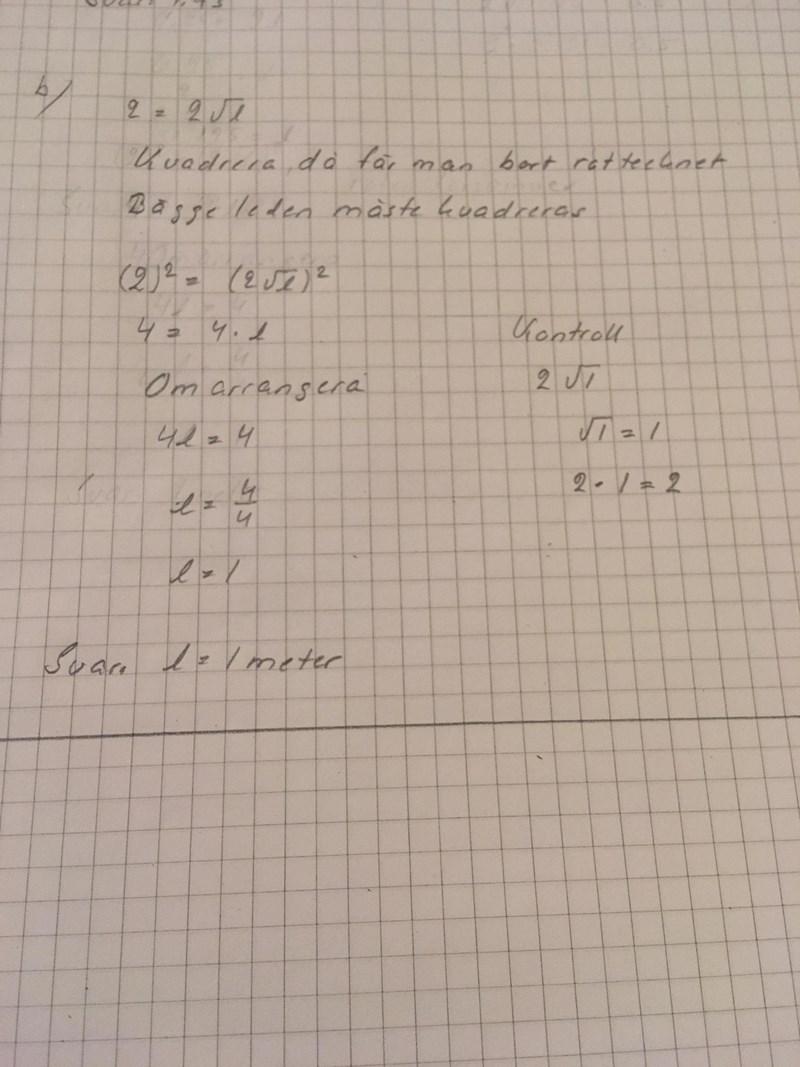 b/
2 = 2√l
Kvadrera då får man bort rottecknet
Bägge leden måste kvadreras
(2)² = (2√l)²
4 = 4·l
Omarrangera
4l = 4
l = 4/4
l = 1
Kontroll
2√1
√1 = 1
2·1 = 2
Svar. l = 1 meter